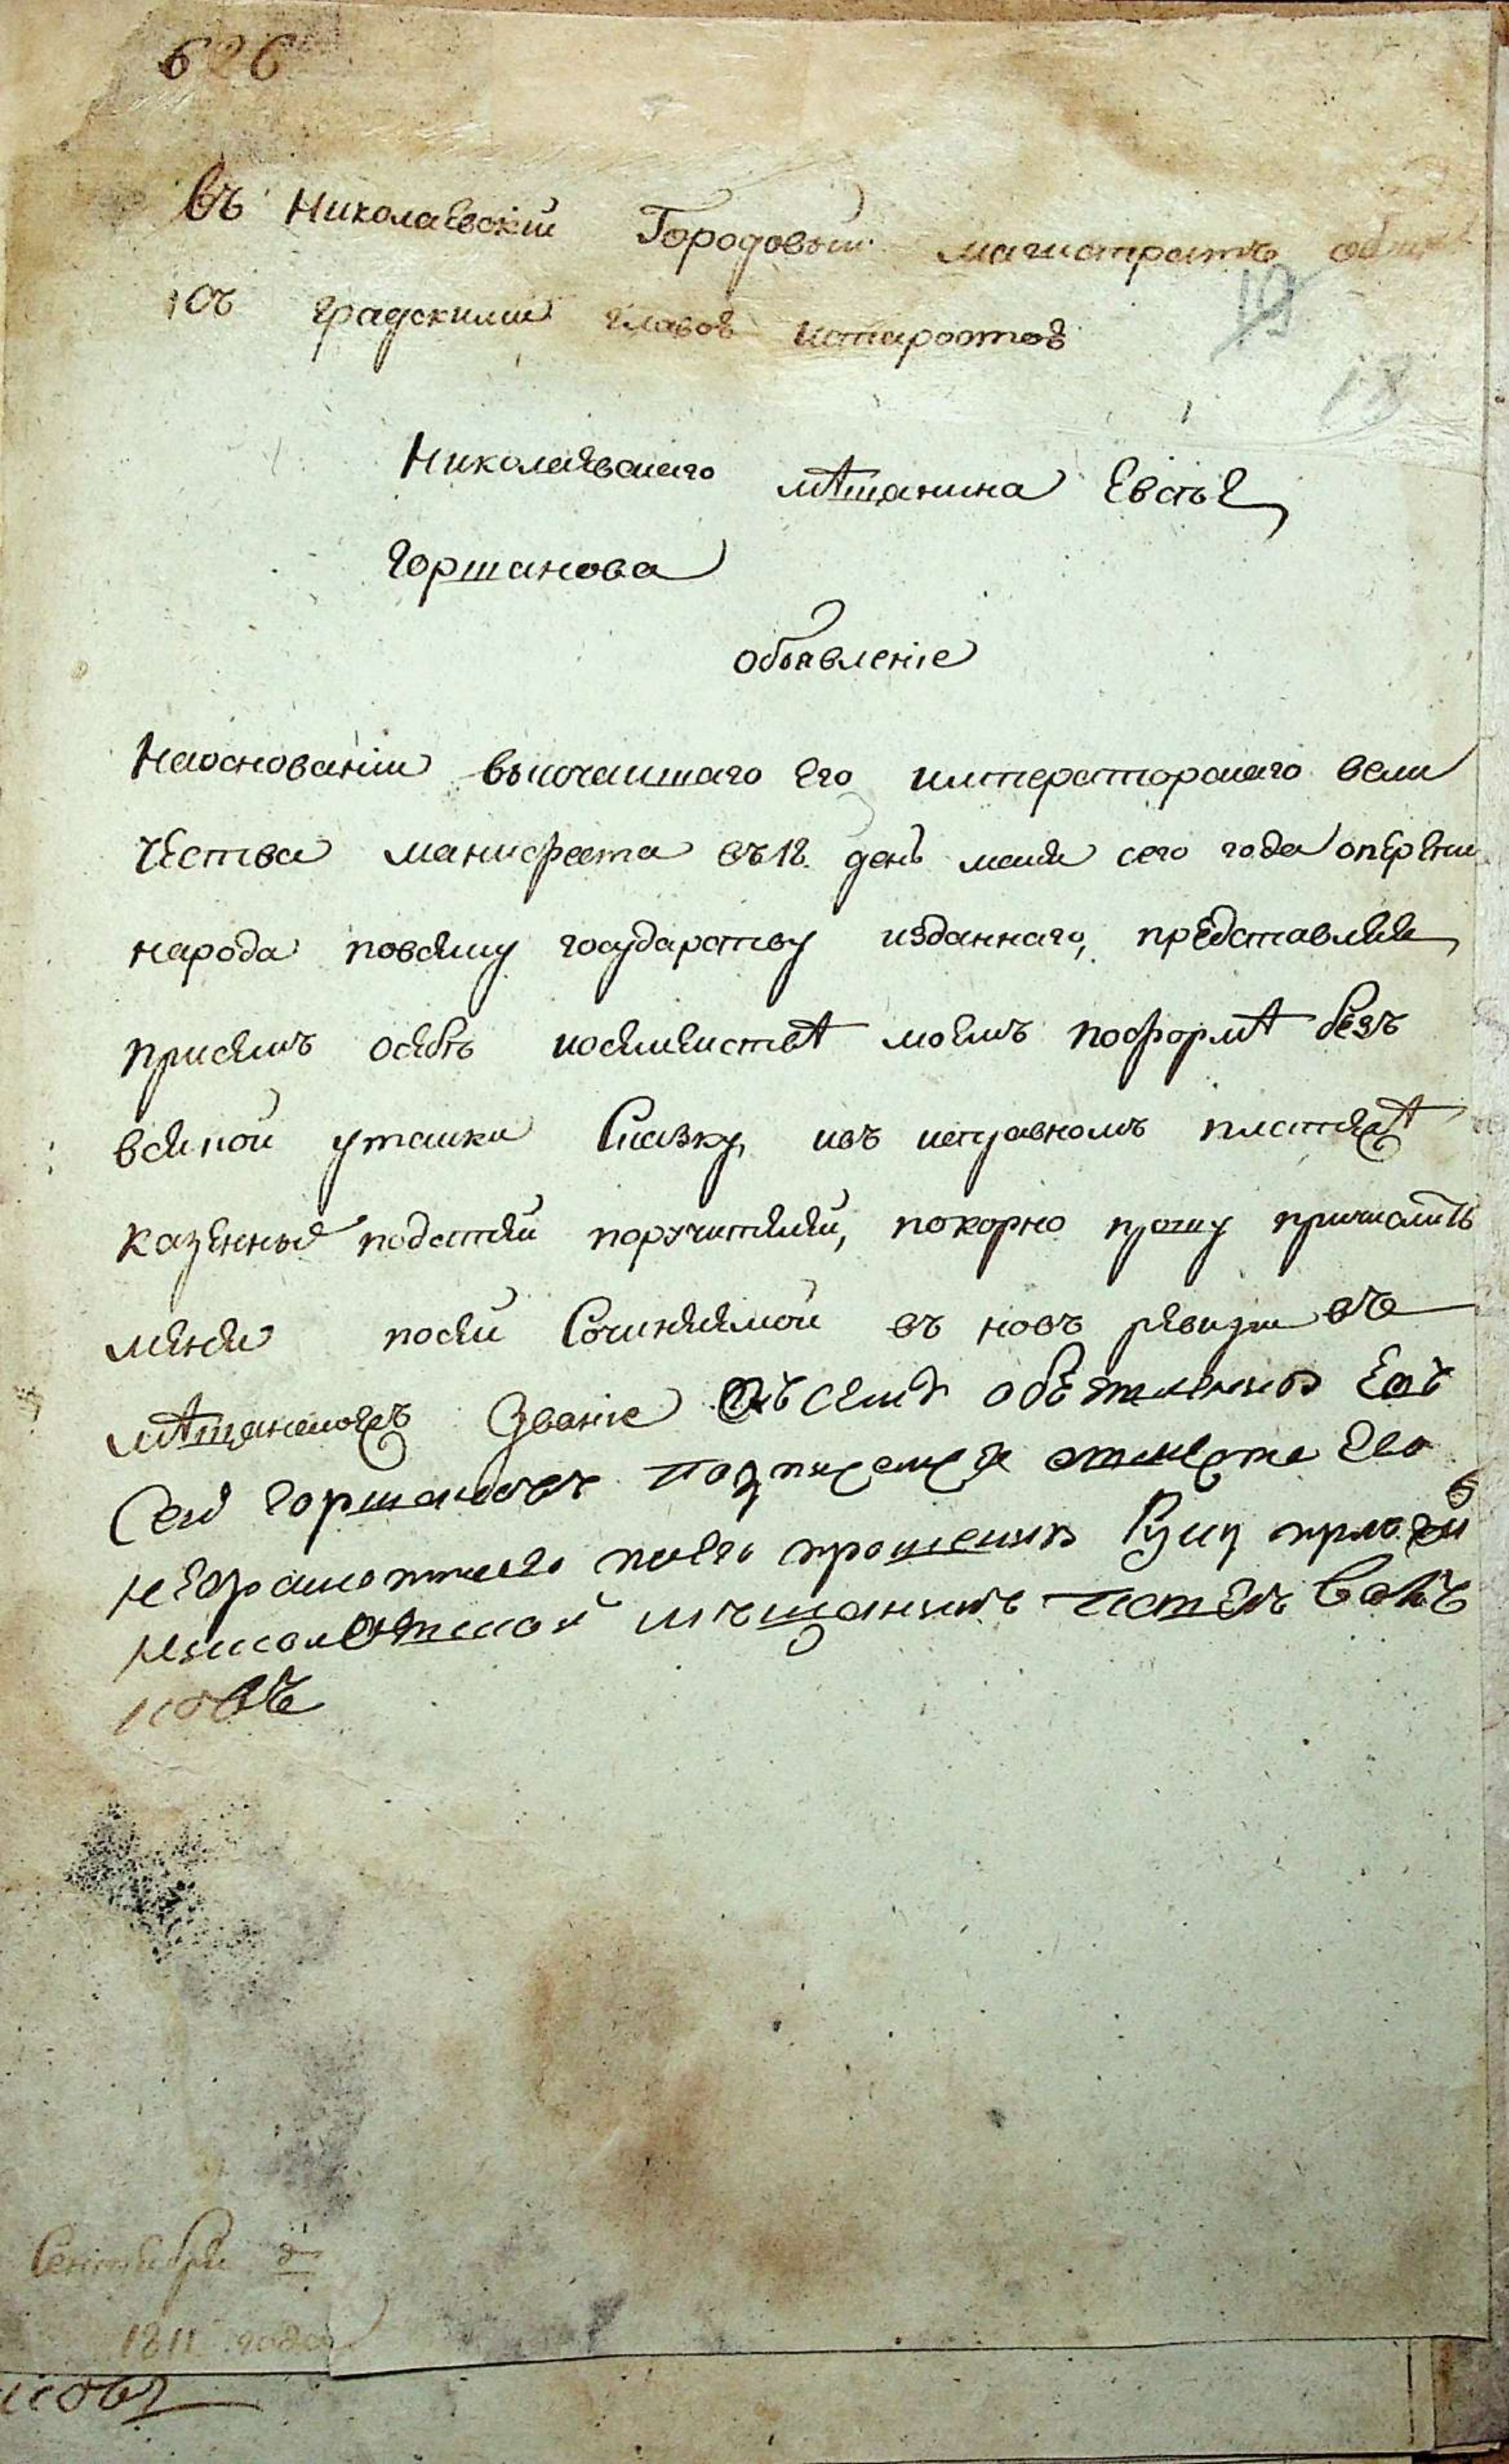 626
Въ Николаевскій Городовый магистратъ общѣ
съ градскими главою истаростою
19
18
Николаевскаго мѣщанина Евсѣя
Горшанова
объявленіе
Наоснованіи высочаишаго Его императорскаго вели
чества манифеста въ 18 день маия сего года опереписи
народа повсему государству изданнаго, представляя
присемъ осебѣ исемеиствѣ моемъ поформѣ безъ
всякой утаики Сказку, ивъ исправномъ платежѣ
казенные податей поручителей, покорно прошу причислить
меня посей Сочиняемой въ новъ ревизіи въ
мѣщанское Званіе Къ сему объявленію Евъ
Сей Горшановъ вместо Его
неграмотнаго поево прошению Руку приложил
николаевской мѣщанинъ
ковъ
Сентября
1811 года
ковъ